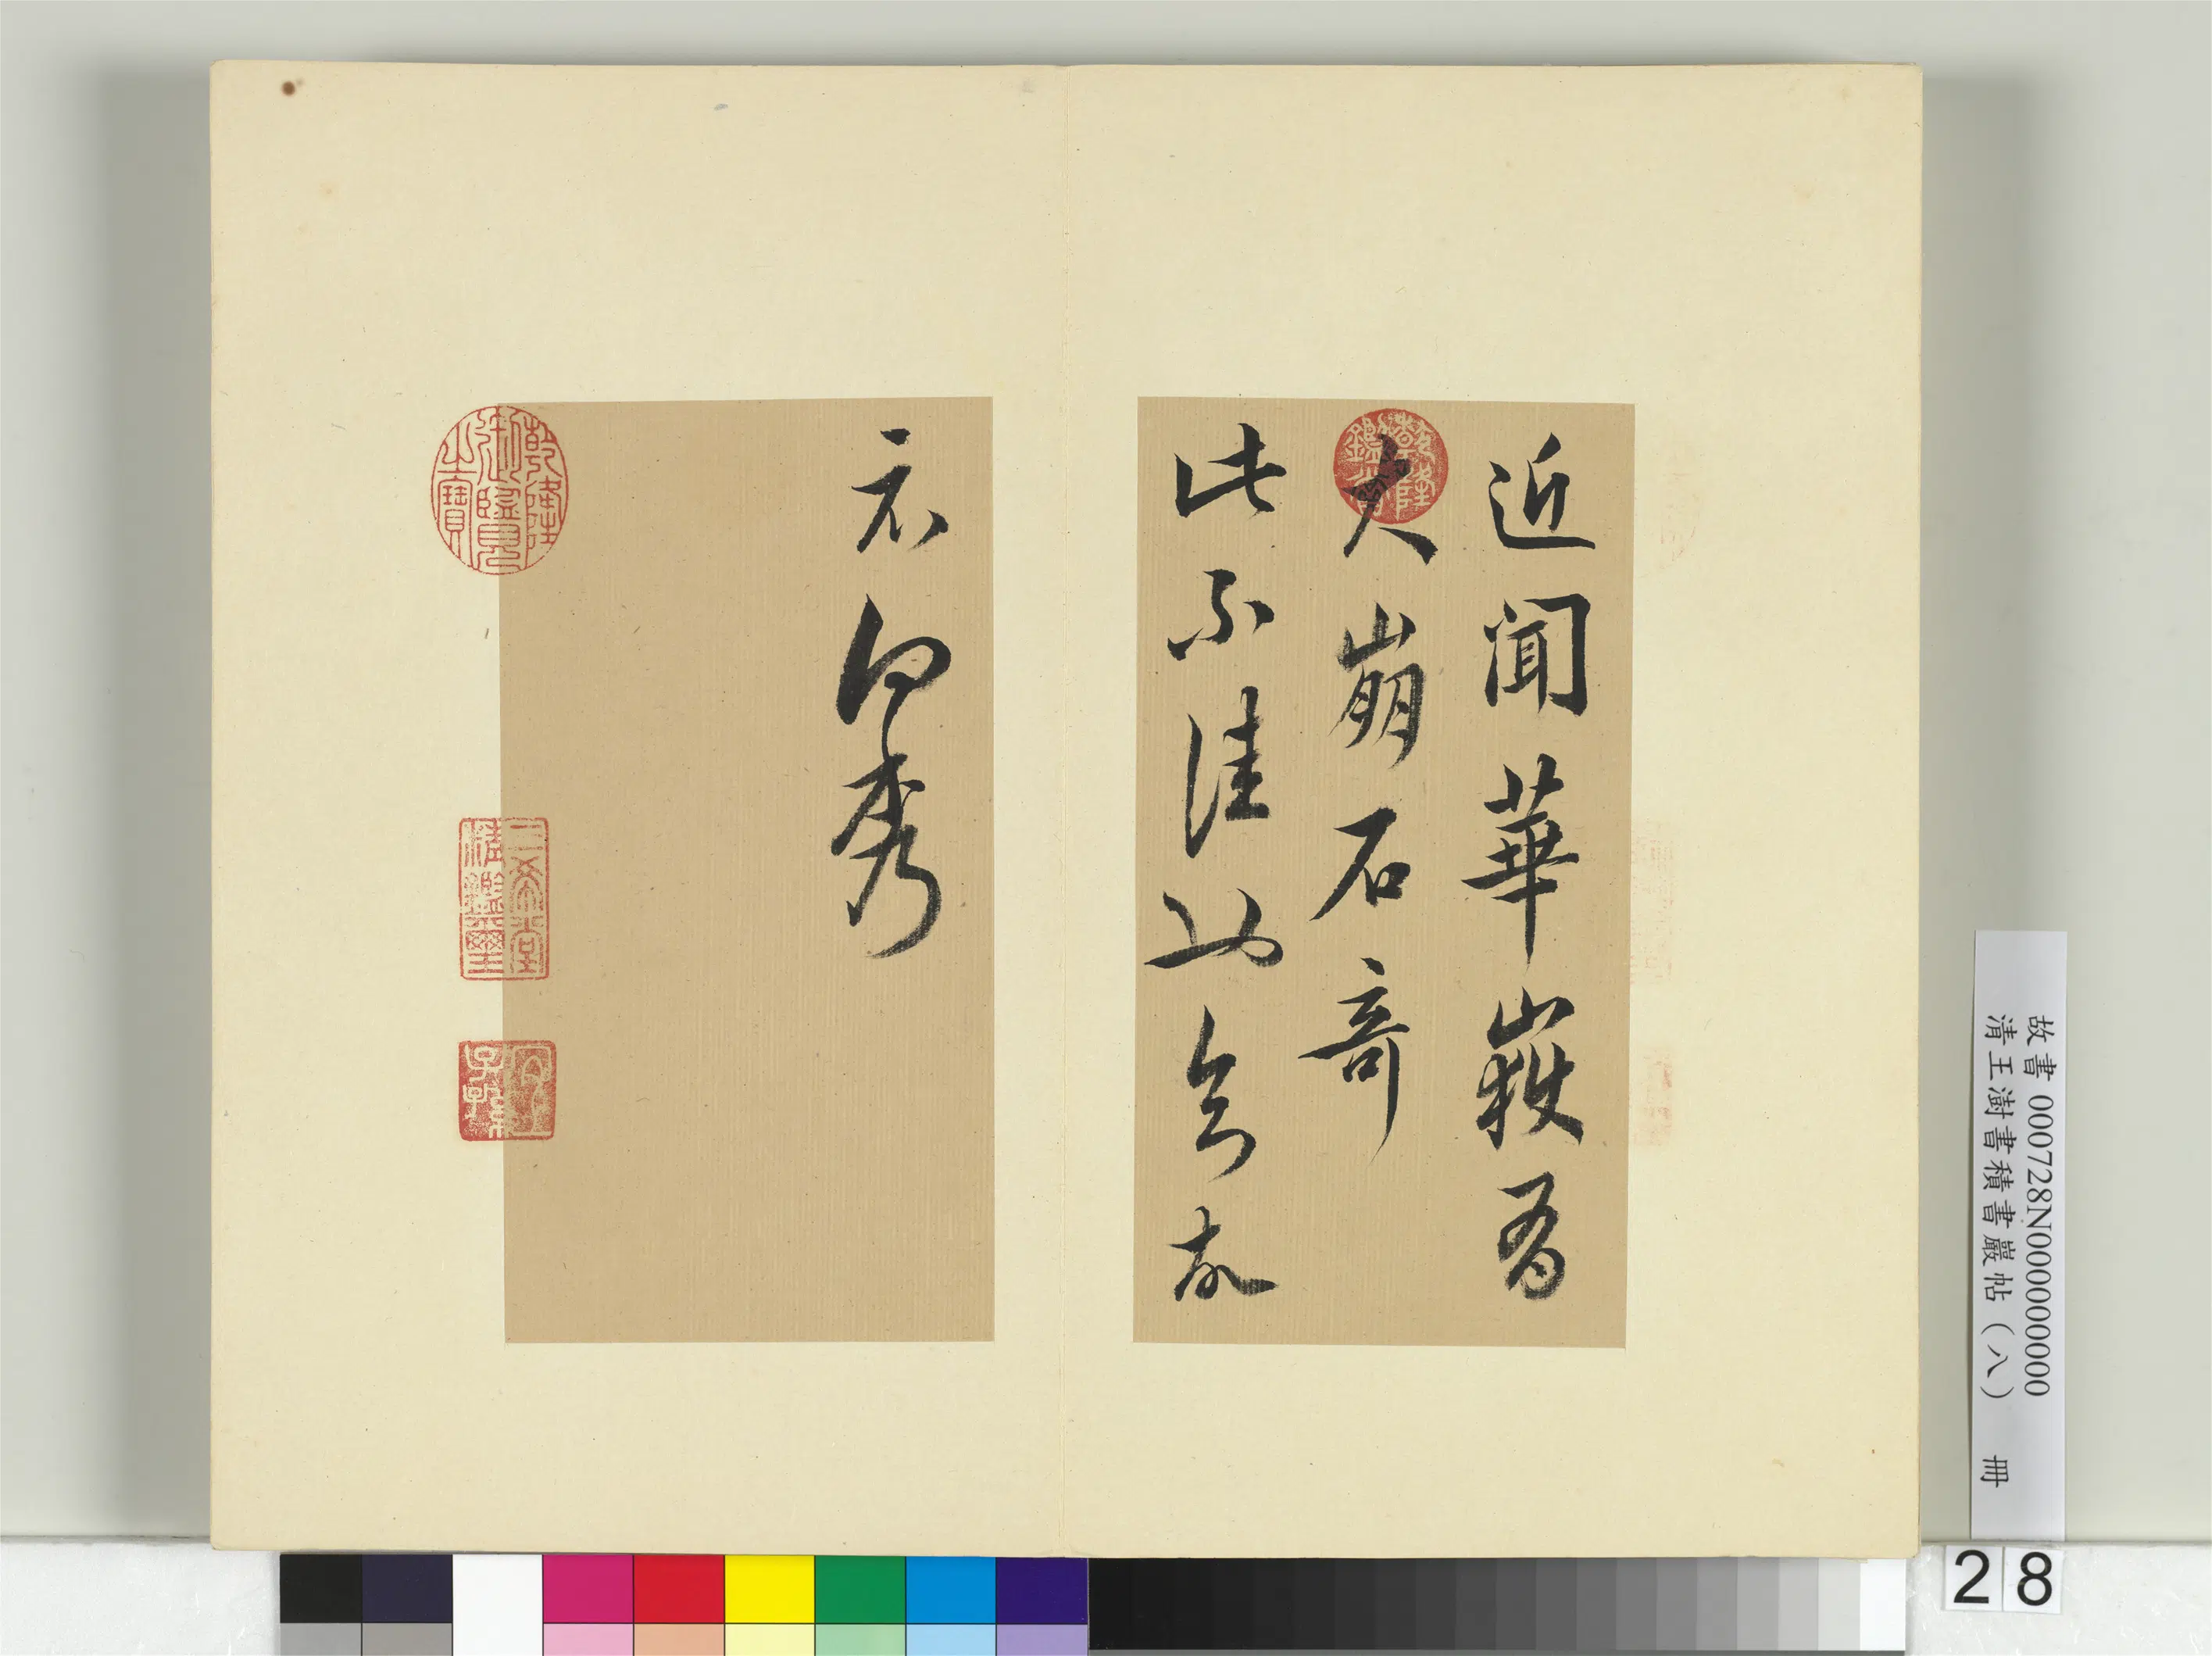 近聞華嶽有
大崩石奇
此不佳
故
秀
乾隆鑑賞
乾隆御覽之寶
三希堂精鑑璽
宜子孫
故書 000728N000000000
清王澍書積書巖帖(八) 冊
28